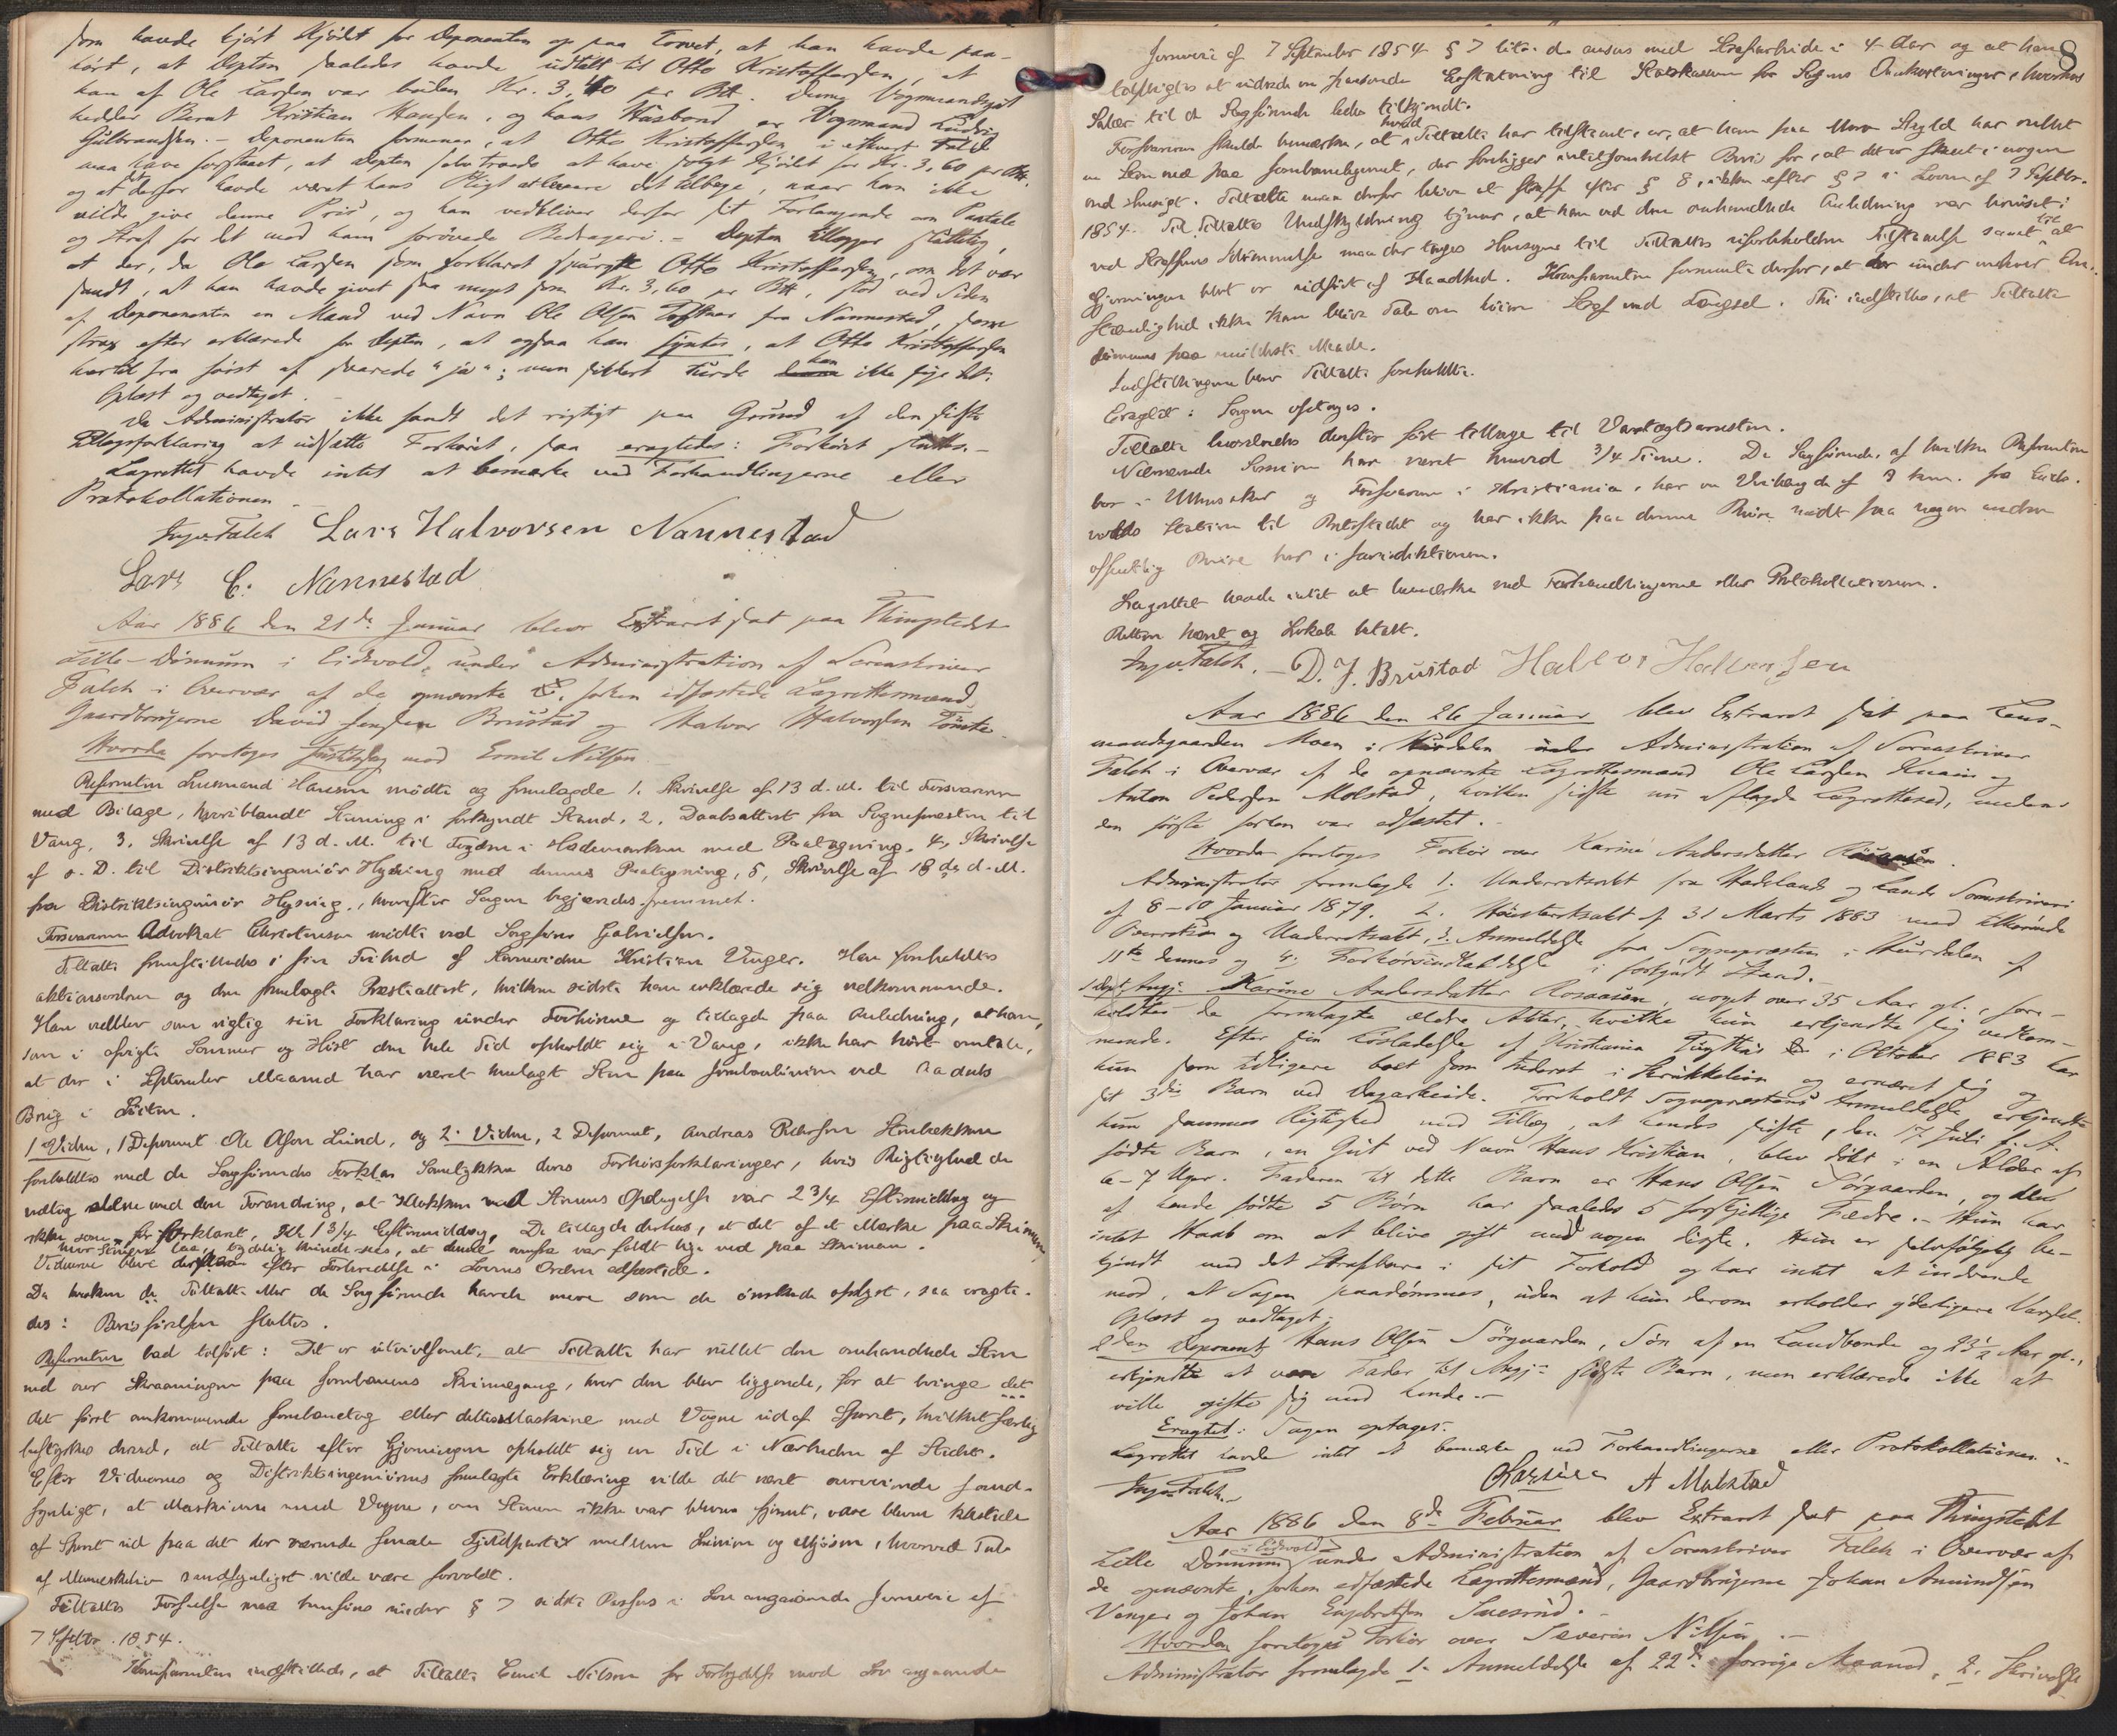 som havde kjørt Kjødet for Deponenten op paa Torvet, at han havde paa-
hørt, at Depten saaledes havde udtalt til Otto Kristoffersen, at
han af Ole Larsen var buden Kr. 3,40 pr B#. Denne Vognmandsgut
hedder Bernt Kristian Hansen, og hans Husbond er Vognmand Ludvig
Gulbrandsen. - Deponenten formener, at Otto Kristoffersen i ethvert Fald
maa have forstaaet, at Depten selv troede at have solgt Kjødet for Kr. 3,60 pr B#.
og at det derfor havde været hans Pligt at levere det tilbage, naar han ikke
vilde give denne Pris, og han vedbliver derfor sit Forlangende om Paatale
og Straf for det mod ham forøvede Bedrageri. - Depten tillægger sluttelig,
at der, da Ole Larsen som forklaret spurgte Otto Kristoffersen, om det var
sandt, at han havde givet saa meget som Kr. 3,60 pr B#, stod ved Siden
af Deponenten en Mand ved Navn Ole Olsen Toftner fra Nannestad, som
strax efter erklærede for Depten, at ogsaa han syntes, at Otto Kristoffersen
hertil fra først af svarede "ja"; men sikkert turde han ikke sige det.
Oplæst og vedtaget. -
Da Administrator ikke fandt det rigtigt paa Grund af den sidste
Tillægsforklaring at udsætte Forhøret, saa eragtedes: Forhøret sluttes. -
Lagrettet havde intet at bemærke ved Forhandlingerne eller
Protokollationen. -
Ingv. Falch Lars Halvorsen Nannestad
Lars C. Nannestad
Aar 1886 den 21de Januar blev Extraret sat paa Thingstedet
Lille-Dønnum i Eidsvold, under Administration af Sorenskriver
Falch i Overvær af de opnævnte, forhen edfæstede Lagrettesmænd,
Gaardbrugerne David Jensen Brustad og Halvor Halvorsen Tømte.
Hvorda foretoges Justitssag mod Emil Nilsen. -
Referenten Lensmand Hansen mødte og fremlagde 1. Skrivelse af 13 d. M. til Forsvareren
med Bilage, hvoriblandt Stævning i forkyndt Stand, 2, Daabsattest fra Sognepresten til
Vang, 3, Skrivelse af 13 d. M. til Fogden i Hedemarken med Paategning, 4, Skrivelse
af s. D. til Distriktsingeniør Hysing med dennes Paategning, 5, Skrivelse af 18de d. M.
fra Distriktsingeniør Hysing, hvorefter Sagen begjæredes fremmet.
Forsvareren Advokat Christensen mødte ved Sagfører Gabrielsen.
Tiltalte fremstilledes i sin Frihed af Kunvidne Kristian Unger. Han foreholdtes
aktionsordren og den fremlagte Præsteattest, hvilken sidste han erklærede sig vedkommende.
Han vedblev som rigtig sin Forklaring under Forhørene og tillagde paa Anledning, at han,
som i afvigte Sommer og Høst den hele Tid opholdt sig i Vang, ikke har hørt omtale,
at der i September Maaned har været henlagt Sten paa Jernbanelinien ved Raaduls
Brug i Stilen.
1. Vidne, 1 Deponent Ole Olsen Lund, og 2. Vidne, 2 Deponent, Andreas Pedersen Stenbækken
foreholdtes med de Sagførendes Forklar. Samtykke deres Forhørsforklaringer, hvis Rigtighed de
vedtog alene med den Forandring, at Klokken ved Stenens Opdagelse var 2 3/4 Eftermiddag og
ikke, som før forklaret, Kl. 1 3/4 Eftermiddag. De tillagde derhos, at det af et Mærke paa Skinnen,
hvor Stenen laa, tydelig kunde sees, at denne ovenfra var faldt lige ned paa Skinnen. -
Vidnerne bleve derefter efter Forberedelse i Lovens Orden edfæstede.
Da hverken de Tiltalte eller de Sagførende havde mere som de ønskede oplyst, saa eragte-
des: Bevisførelsen sluttes.
Referenten bad tilført: Det er utvivlsomt, at Tiltalte har rullet den omhandlede Sten
ned over Skraaningen paa Jernbanens Skinnegang, hvor den blev liggende, for at bringe det
det først ankommende Jernbanetog eller dettes Maskine med Vogne ud af Sporet, hvilket særlig
bestyrkes derved, at Tiltalte efter Gjerningen opholdt sig en Tid i Nærheden af Stedet.
Efter Vidnernes og Distriktsingeniørens fremlagte Erklæring vilde det være overveiende sand-
synligt, at Maskinen med Vogne, om Stenen ikke var bleven fjernet, være bleven kastede
af Sporet ud paa det her værende smale Fjeldparti mellem Linien og Mjøsen, hvorved Tab
af Menneskeliv sandsynligvis vilde være forvoldt.
Tiltaltes Forseelse maa henføres under § 7 sidste Passus i Lov angaaende Jernveie af
7 Septbr. 1854.
Konferenten indstillede, at Tiltalte Emil Nilsen for Forbrydelse mod Lov angaaende
8
Jernveie af 7 September 1854 § 7 litr. d. ansees med Strafarbeide i 4 Aar og at han
tilpligtes at udrede en passende Erstatning til Statskassen for Sagens Omkostninger, hvorhos
Salær til de Sagførende bedes tilkjendt.
Forsvareren skulde bemærke, at hvad Tiltalte har tilstaaet, er, at han paa Moro Skyld har rullet
en Sten ned paa Jernbanelegemet, der foreligger intetsomhelst Bevis for, at det er skeet i nogen
ond Hensigt. Tiltalte maa derfor blive at straffe efter § 8, ikke efter § 7 i Loven af 7 Septbr.
1854. Til Tiltaltes Undskyldning tjener, at han ved den omhandlede Anledning var beruset i
ved Straffens Udmaalelse maa der tages Hensyn til Tiltaltes uforbeholdne Tilstaaelse samt til at
Gjerningen blot er udført af Kaadhed. Konferenten formente derfor, at der under enhver Om-
stændighed ikke kan blive Tale om høiere Straf end Fængsel. Thi indstilles, at Tiltalte
dømmes paa mildeste Maade.
Indstillingerne blev Tiltalte foreholdte.
Eragtet: Sagen optages.
Tiltalte hvorledes derefter ført tilbage til Varetægtsarresten.
Nærværende Session har været henved 3/4 Time. De Sagførende, af hvilke Referenten
bor i Ullensaker og Forsvareren i Kristiania, har en Veilængde af 9 km. fra Eids-
volds Station til Retsstedet og har ikke paa denne Reise mødt paa nogen anden
offentlig Reise her i Jurisdiktionen.
Lagrettet havde intet at bemærke ved Forhandlingerne eller Protokollationen.
Retten hævet og Lokale betalt.
Ingv. Falch. - D. J. Brustad Halvor Halvorsen
Aar 1886 den 26 Januar blev Extraret sat paa Lens-
mandsgaarden Moen i Hurdalen under Administration af Sorenskriver
Falch i Overvær af de opnævnte Lagrettesmænd Ole Larsen Knain og
Anton Pedersen Molstad, hvilken sidste nu aflagde Lagrettesed, medens
den første forhen var edfæstet. -
Hvorda foretoges Forhør over Karine Andersdatter Rosaasen.
Administrator fremlagde 1. Underretsakt fra Hadeland og Lands Sorenskriveri
af 8-10 Januar 1879. 2. Høiesteretsakt af 31 Marts 1883 med tilhørende
Overretsakt og Underretsakt, 3. Anmeldelse fra Sognepræsten i Hurdalen af
11te dennes og 4, Forhørsindkaldelse i forkyndt Stand. -
1 Dept. Angj. Karine Andersdatter Rosaasen, noget over 35 Aar gl., fore-
holdtes de fremlagte ældre Akter, hvilke hun erkjendte sig vedkom-
mende. Efter sin Løsladelse af Kristiania Tugthus i Oktober 1883 har
hun som tidligere boet som Inderst i Skrukkelien og ernæret sig og
sit 3die Barn ved Dagarbeide. Foreholdt Sognepræstens Anmeldelse erkjendte
hun sammes Rigtighed med Tillæg, at hendes sidste, den 17 Juli f. A.
fødte Barn, en Gut ved Navn Hans Kristian, blev dødt i en Alder af
6-7 Uger. Faderen til dette Barn er Hans Olsen Sørgaarden, og de
af hende fødte 5 Børn har saaledes 5 forskjellige Fædre. - Hun har
intet Haab om at blive gift med nogen af disse. Hun er selvfølgelig be-
kjendt med det Strafbare i sit Forhold og har intet at indvende
mod, at Sagen paadømmes, uden at hun derom erholder yderligere Varsel.
Oplæst og vedtaget.
2den Deponent, Hans Olsen Sørgaarden, Søn af en Landbonde og 23 1/2 Aar gl.,
erkjendte at være Fader til Angj's sidste Barn, men erklærede ikke at
ville gifte sig med hende. -
Eragtet: Sagen optages.
Lagrettet havde intet at bemærke ved Forhandlingerne eller Protokollationen. -
Ingv. Falch. - O Larsen A Molstad
Aar 1886 den 8de Februar blev Extraret sat paa Thingstedet
Lille Dønnum i Eidsvold under Administration af Sorenskriver Falch i Overvær af
de opnævnte, forhen edfæstede Lagrettesmænd, Gaardbrugerne Johan Amundsen
Venger og Johan Engebretsen Julsrud. -
Hvorda foretoges Forhør over Severin Nilsen. -
Administrator fremlagde 1. Anmeldelse af 22de forrige Maaned, 2. Skrivelse